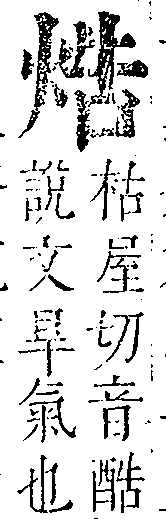 焅
枯屋切音酷
說文旱氣也